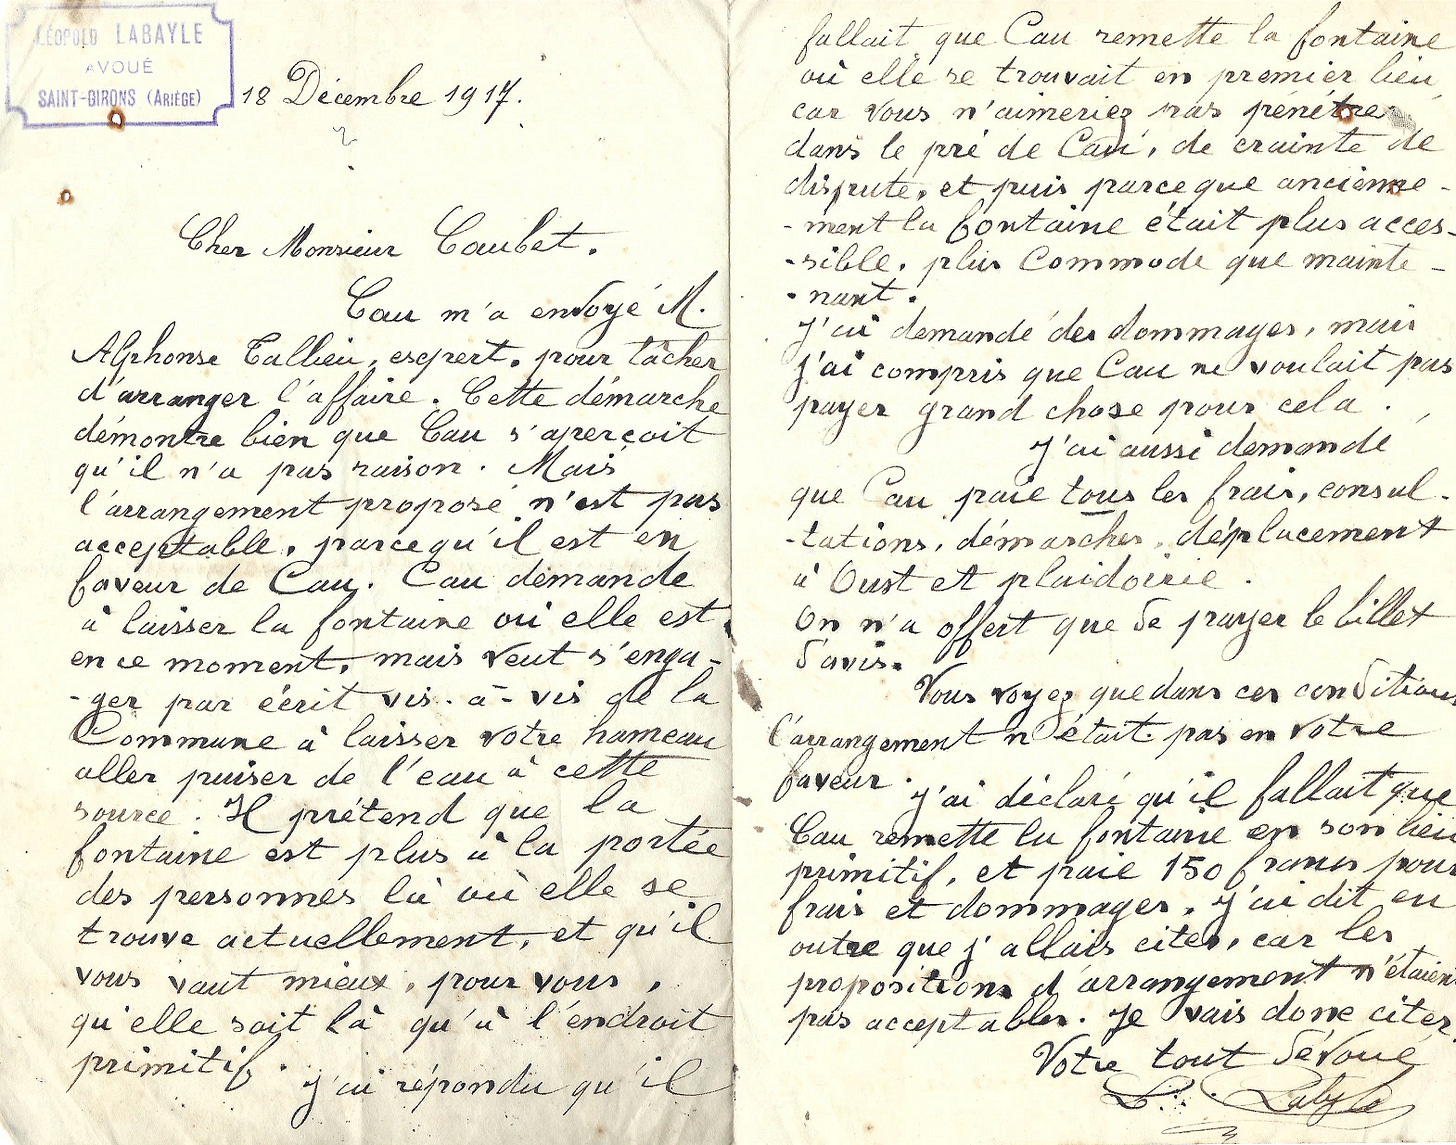 LÉOPOLD LABAYLE
AVOUÉ
SAINT-GIRONS (ARIÈGE)
18 Décembre 1917.
Cher Monsieur Caubet.
Cau m'a envoyé M.
Alphonse Tallieu, expert, pour tâcher
d'arranger l'affaire. Cette démarche
démontre bien que Cau s'aperçoit
qu'il n'a pas raison. Mais
l'arrangement proposé n'est pas
acceptable, parcequ'il est en
faveur de Cau. Cau demande
à laisser la fontaine où elle est
en ce moment, mais veut s'enga-
-ger par écrit vis-à-vis de la
Commune à laisser votre hameau
aller puiser de l'eau à cette
source. Il prétend que la
fontaine est plus à la portée
des personnes là où elle se
trouve actuellement, et qu'il
vous vaut mieux, pour vous,
qu'elle soit là qu'à l'endroit
primitif.
J'ai répondu qu'il
fallait que Cau remette la fontaine
où elle se trouvait en premier lieu,
car vous n'aimeriez pas pénétrer
dans le pré de Cau, de crainte de
dispute, et puis parceque ancienne-
-ment la fontaine était plus acces-
-sible, plus commode que mainte-
-nant.
J'ai demandé des dommages, mais
j'ai compris que Cau ne voulait pas
payer grand chose pour cela.
J'ai aussi demandé
que Cau paie tous les frais, consul-
-tations, démarches, déplacement
à Oust et plaidoirie.
On n'a offert que de payer le billet
d'avis.
Vous voyez que dans ces conditions
l'arrangement n'était pas en votre
faveur.
J'ai déclaré qu'il fallait que
Cau remette la fontaine en son lieu
primitif, et paie 150 francs pour
frais et dommages. J'ai dit en
outre que j'allais citer, car les
propositions d'arrangement n'étaient
pas acceptables. Je vais donc citer.
Votre tout dévoué
L. Labayle